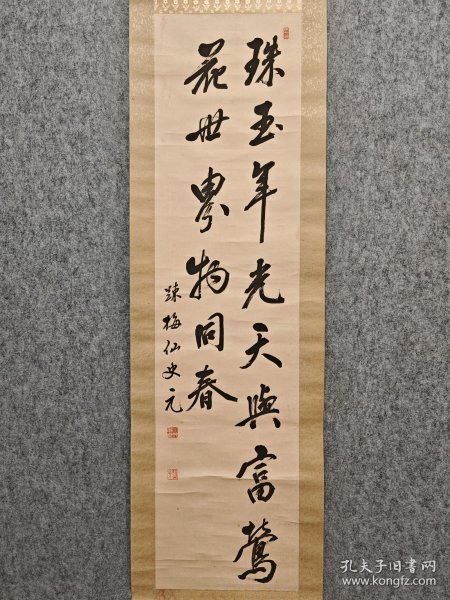 珠玉年光天與富鶯
花世界物同春
疎梅仙史元
孔夫子旧书网
www.kongfz.com